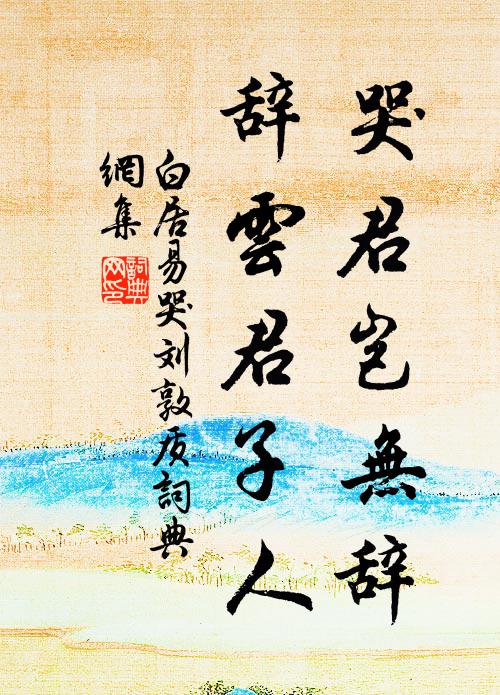 哭君岂無辞
辞雲君子人
白居易哭刘敦质詞典
網集
詞典
网印